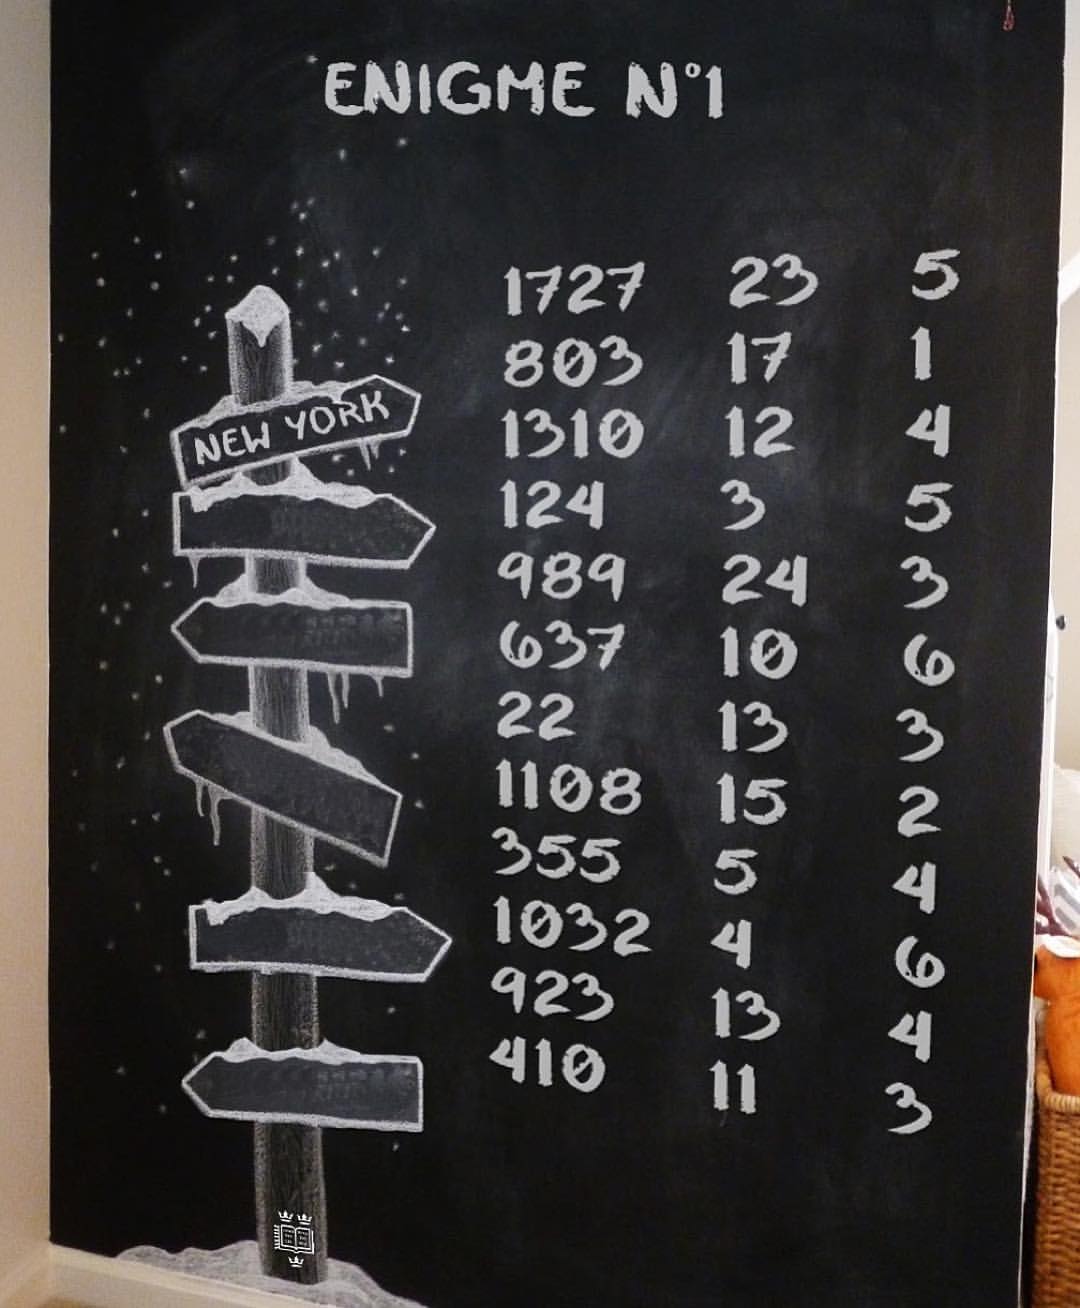 ENIGME N°1
NEW YORK
1727 23 5
803 17 1
1310 12 4
124 3 5
989 24 3
637 10 6
22 13 3
1108 15 2
355 5 4
1032 4 6
923 13 4
410 11 3